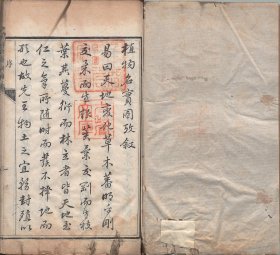 植物名實圖攷敘
易曰天地變化草木蕃明乎剛
交柔而生根荄柔交剛而生枝
葉其蔓衍而林立者皆天地至
仁之氣所隨時而發不擇地而
形也故先王物土之宜務封殖以
序